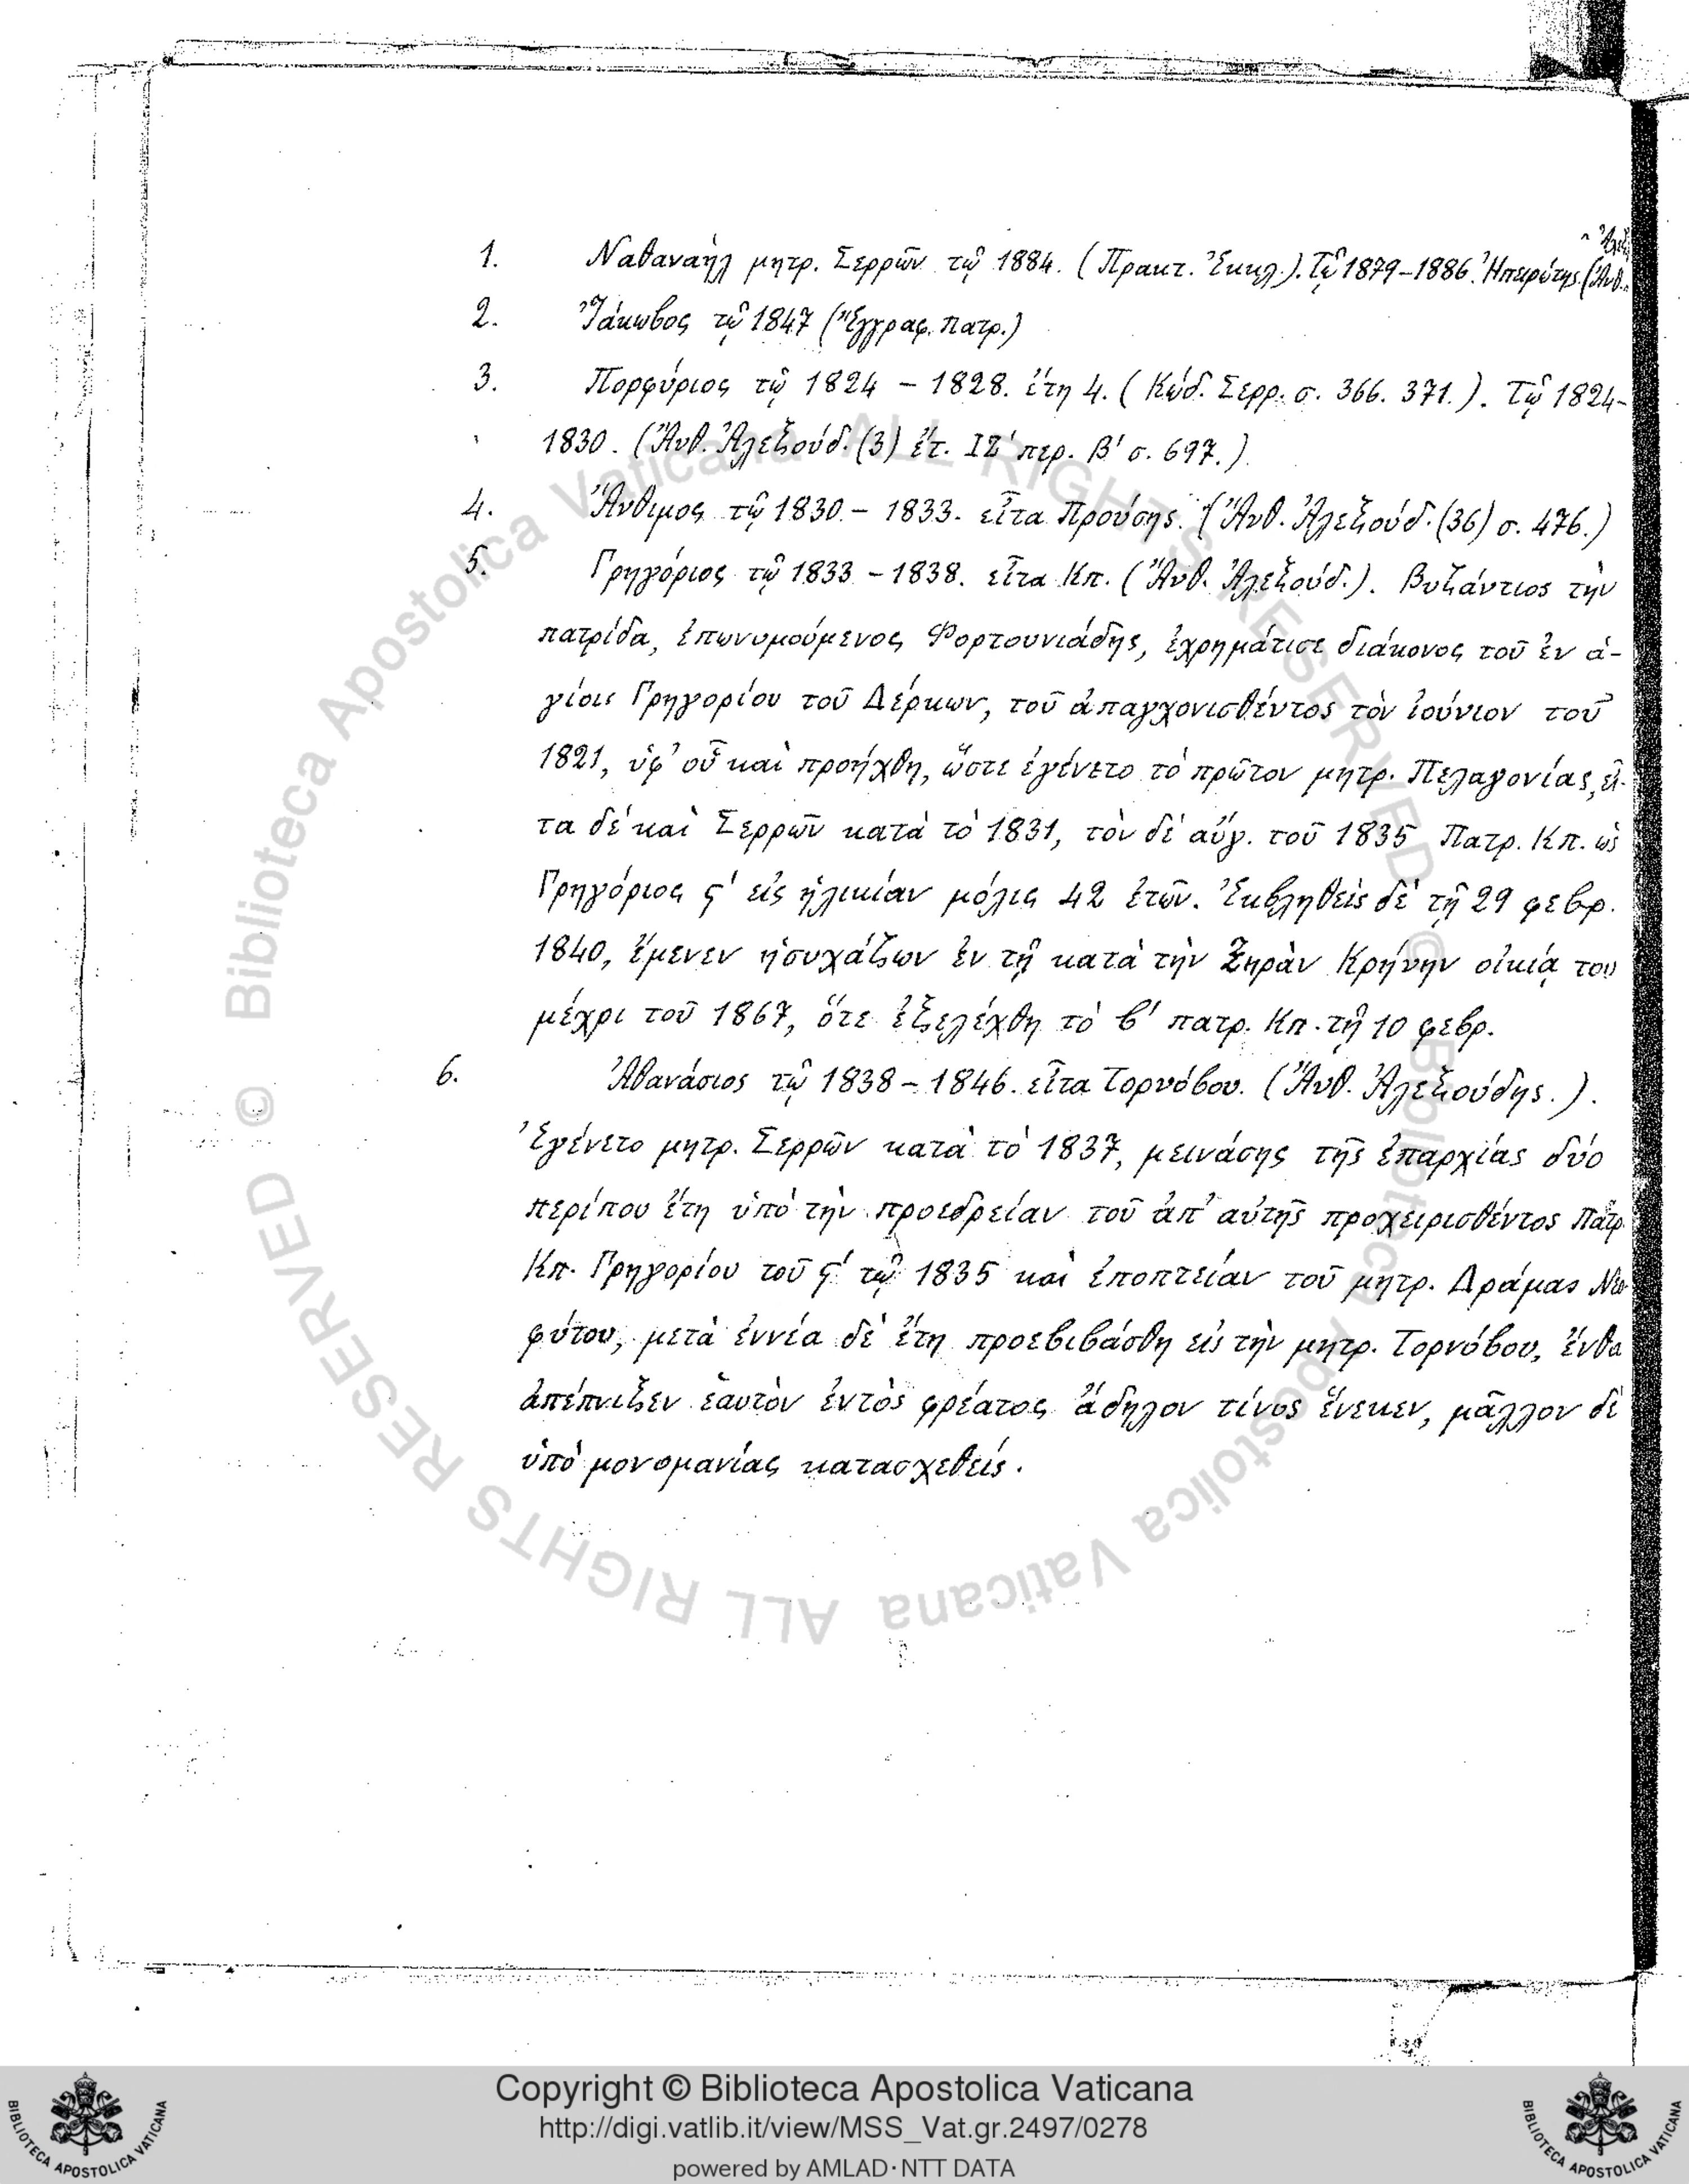 1. Ναθαναὴλ μητρ. Σερρῶν τῷ 1884. (Πρακτ. Ἐκκλ.). Τῷ 1879-1886. Ἠπειρώτης. (Ἀνθ.
2. Ἰάκωβος τῷ 1847 (Ἔγγραφ. Πατρ.)
3. Πορφύριος τῷ 1824 – 1828. ἔτη 4. (Κώδ. Σερρ. σ. 366. 371.). Τῷ 1824-
1830. (Ἄνθ. Ἀλεξούδ. (3) ἔτ. ΙΖ' περ. Β' σ. 697.).
4. Ἄνθιμος τῷ 1830. – 1833. εἶτα Προύσης. (Ἄνθ. Ἀλεξούδ. (36) σ. 476.)
5. Γρηγόριος τῷ 1833 – 1838. εἶτα Κπ. (Ἄνθ. Ἀλεξούδ.). Βυζάντιος τὴν
πατρίδα, ἐπωνυμούμενος Φορτουνιάδης, ἐχρημάτισε διάκονος τοῦ ἐν ἁ-
γίοις Γρηγορίου τοῦ Δέρκων, τοῦ ἀπαγχονισθέντος τὸν ἰούνιον τοῦ
1821, ὑφ' οὗ καὶ προήχθη, ὥστε ἐγένετο τὸ πρῶτον μητρ. Πελαγονίας, εἶ-
τα δὲ καὶ Σερρῶν κατὰ τὸ 1831, τὸν δὲ αὔγ. τοῦ 1835 Πατρ. Κπ. ὡς
Γρηγόριος ϛ' εἰς ἡλικίαν μόλις 42 ἐτῶν. Ἐκβληθεὶς δὲ τῇ 29 φεβρ.
1840, ἔμενεν ἡσυχάζων ἐν τῇ κατὰ τὴν Ξηρὰν Κρήνην οἰκίᾳ του
μέχρι τοῦ 1867, ὅτε ἐξελέχθη τὸ β' πατρ. Κπ. τῇ 10 φεβρ.
6. Ἀθανάσιος τῷ 1838 – 1846. εἶτα Τορνόβου. (Ἄνθ. Ἀλεξούδης.).
Ἐγένετο μητρ. Σερρῶν κατὰ τὸ 1837, μεινάσης τῆς ἐπαρχίας δύο
περίπου ἔτη ὑπὸ τὴν προεδρείαν τοῦ ἀπ' αὐτῆς προχειρισθέντος Πατρ.
Κπ. Γρηγορίου τοῦ ϛ' τῷ 1835 καὶ ἐποπτείαν τοῦ μητρ. Δράμας Νεο
φύτου, μετὰ ἐννέα δὲ ἔτη προεβιβάσθη εἰς τὴν μητρ. Τορνόβου, ἔνθα
ἀπέπνιξεν ἑαυτὸν ἐντὸς φρέατος ἄδηλον τίνος ἕνεκεν, μᾶλλον δὲ
ὑπὸ μονομανίας κατασχεθείς.
© Biblioteca Apostolica Vaticana ALL RIGHTS RESERVED © Biblioteca Apostolica Vaticana ALL RIGHTS RESERVED
Copyright © Biblioteca Apostolica Vaticana
http://digi.vatlib.it/view/MSS_Vat.gr.2497/0278
powered by AMLAD·NTT DATA
BIBLIOTECA APOSTOLICA VATICANA
BIBLIOTECA APOSTOLICA VATICANA